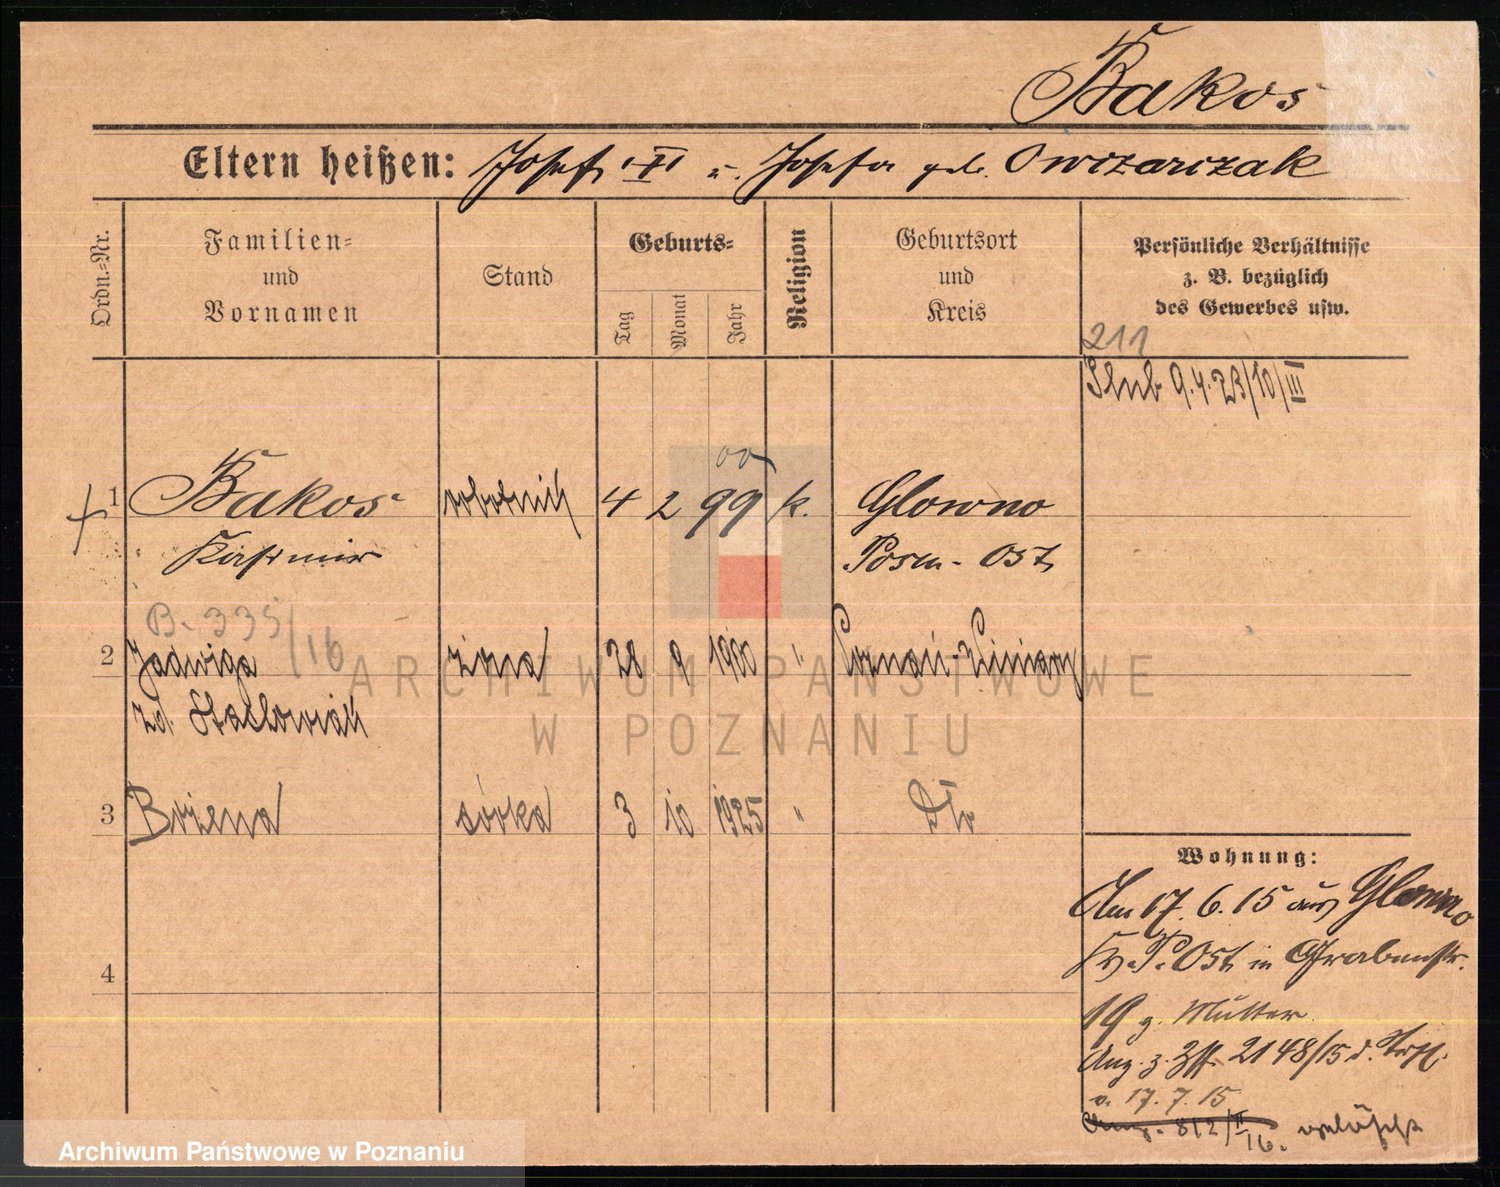 Bakos
Eltern heißen: Josef u. Josefa geb. Owczarczak
Ordn.-Nr.
Familien-
und
Vornamen
Stand
Geburts-
Tag
Monat
Jahr
Religion
Geburtsort
und
Kreis
Persönliche Verhältnisse
z. B. bezüglich
des Gewerbes usw.
211
Slub 9.4.23/10/III
00
1 Bakos robotnik 4 2 99 k. Glowno
Kasimir Posen-Ost
B. 335/16
2 Jadwiga żona 28 9 1900 " Poznań-Winiary
zd. Stachowiak
3 Bożena córka 3 10 1925 "
4
Wohnung:
Am 17.6.15 aus Glowno
Kr. P. Ost in Grabenstr.
19 z. Mutter
Ang. z. 2148/15 d.
v. 17.7.15
812/II/16. gelöscht
ARCHIWUM PAŃSTWOWE
W POZNANIU
Archiwum Państwowe w Poznaniu